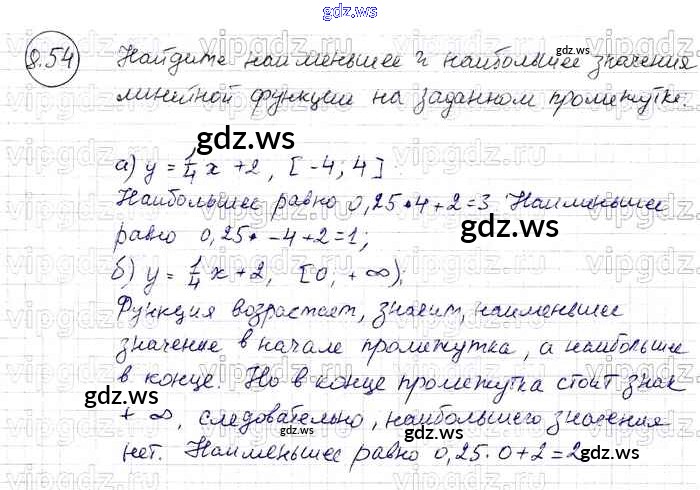 gdz.ws
8.54 Найдите наименьшее и наибольшее значения
gdz.ws
линейной функции на заданном промежутке:
gdz.ws
а) y = 1/4 x + 2, [-4; 4]
Наибольшее равно 0,25•4+2=3 Наименьшее
равно 0,25• -4+2=1;
gdz.ws
б) y = 1/4 x + 2, [0, +∞);
Функция возрастает, значит, наименьшее
значение в начале промежутка, а наибольшее
в конце. Но в конце промежутка стоит знак
gdz.ws
+ ∞, следовательно, наибольшего значения
gdz.ws
нет. Наименьшее равно 0,25•0+2=2
gdz.ws